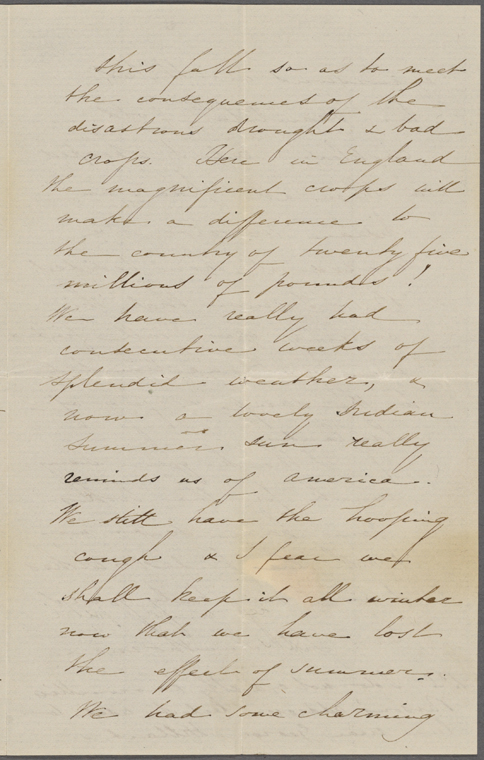 this fall so as to meet
the consequences of the
disastrous drought & bad
crops. Here in England
the magnificent crops will
make a difference to
the country of twenty five
millions of pounds!
We have really had
consecutive weeks of
splendid weather, &
now a lovely Indian
summer sun really
reminds us of America.
We still have the hooping
cough & I fear we
shall keep it all winter
now that we have lost
the effect of summer.
We had some charming